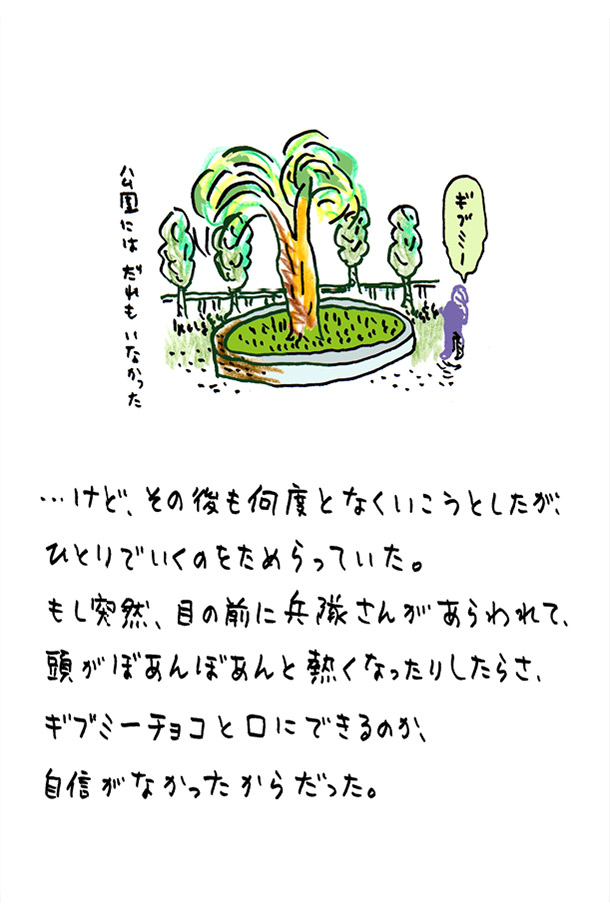 公園にはだれもいなかった
ギブミー
…けど、その後も何度となくいこうとしたが、
ひとりでいくのをためらっていた。
もし突然、目の前に兵隊さんがあらわれて、
頭がぼあんぼあんと熱くなったりしたらさ、
ギブミーチョコと口にできるのか、
自信がなかったからだった。